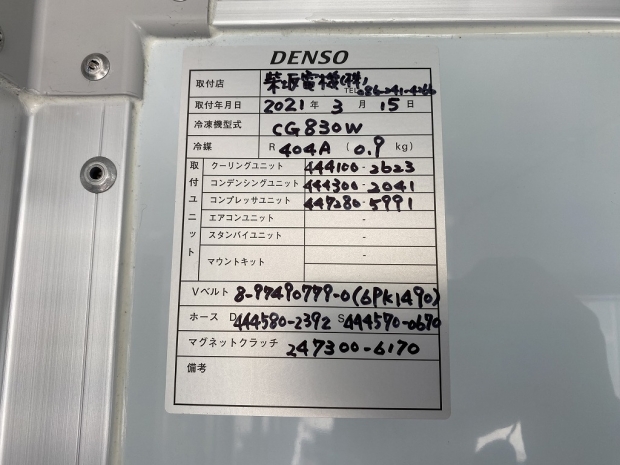 DENSO
取付店 柴坂電機(株) TEL 086-241-4266
取付年月日 2021 年 3 月 15 日
冷凍機型式 CG830W
冷媒 R 404A ( 0.9 kg)
取付ユニット
クーリングユニット 444100-2623
コンデンシングユニット 444300-2041
コンプレッサユニット 447280-5991
エアコンユニット -
スタンバイユニット -
マウントキット -
-
Vベルト 8-97490779-0 (6PK1490)
ホース D 444580-2392 S 444570-0670
マグネットクラッチ 247300-6170
備考